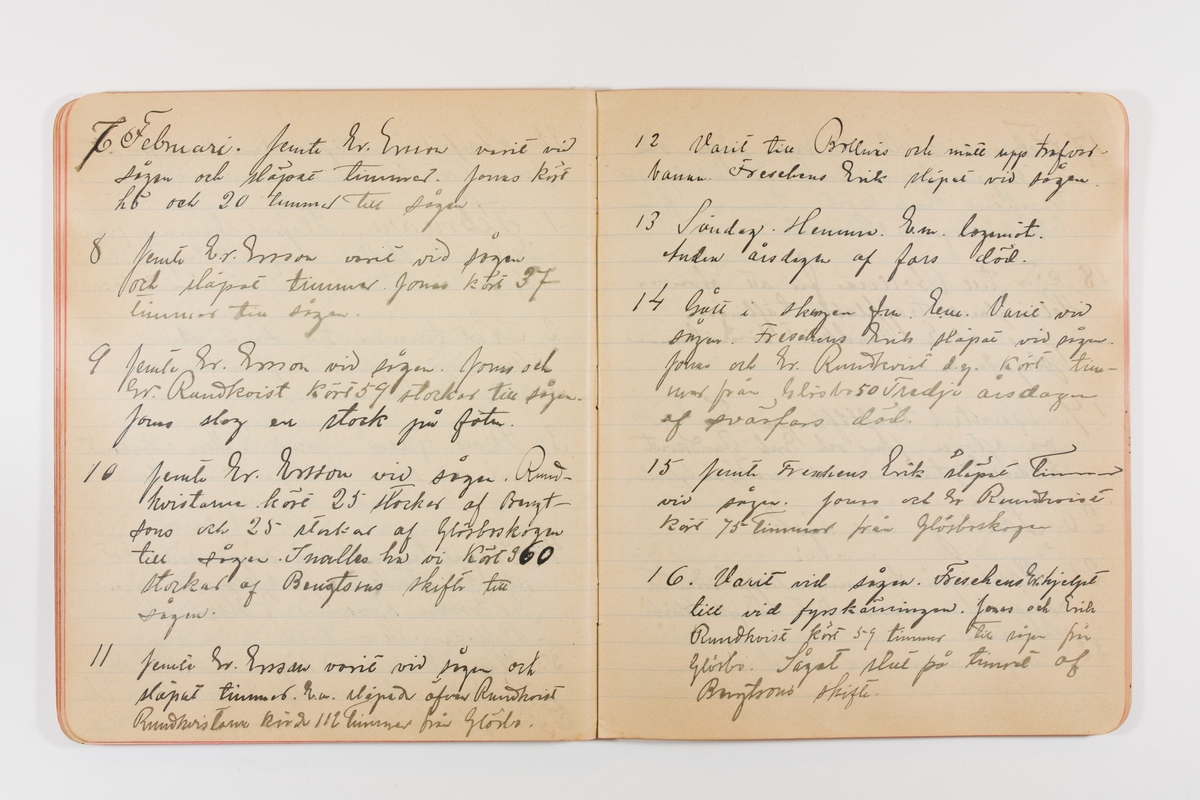 7. Februari. Jemte Er. Ersson varit vid
sågen och släpat timmer. Jonas kört
hö och 20 timmer till sågen.
8 Jemte Er. Ersson varit vid sågen
och släpat timmer. Jonas kört 37
timmer till sågen.
9 Jemte Er. Ersson vid sågen. Jonas och
Er. Rundkvist kört 59 stockar till sågen.
Jonas slog en stock på foten.
10 Jemte Er. Ersson vid sågen. Rund-
kvistarna kört 25 stockar af Bengt-
sons och 25 stockar af Glösboskogen
till sågen. Inalles ha vi kört 960
stockar af Bengtsons skifte till
sågen.
11 Jemte Er. Ersson varit vid sågen och
släpat timmer. E.m. släpade äfven Rundkvist
Rundkvistarna körde 112 timmer från Glösbo.
12 Varit till Bollnäs och mätt upp trafvar-
banan. Freschens Erik släpat vid sågen.
13 Söndag. Hemma. E.m. logemöt.
Andra årsdagen af fars död.
14 Gått i skogen fm. E.m. Varit vid
sågen. Freschens Erik släpat vid sågen.
Jonas och Er. Rundkvist d.y. kört tim-
mer från Glösbo 50 Tredje årsdagen
af svärfars död.
15 Jemte Freschens Erik släpat timmer
vid sågen. Jonas och Er Rundkvist
kört 75 timmer från Glösboskogen
16. Varit vid sågen. Freschens Er. hjelpt
till vid fyrskärningen. Jonas och Erik
Rundkvist kört 59 timmer till sågen från
Glösbo. Sågat slut på timret af
Bengtsons skifte.